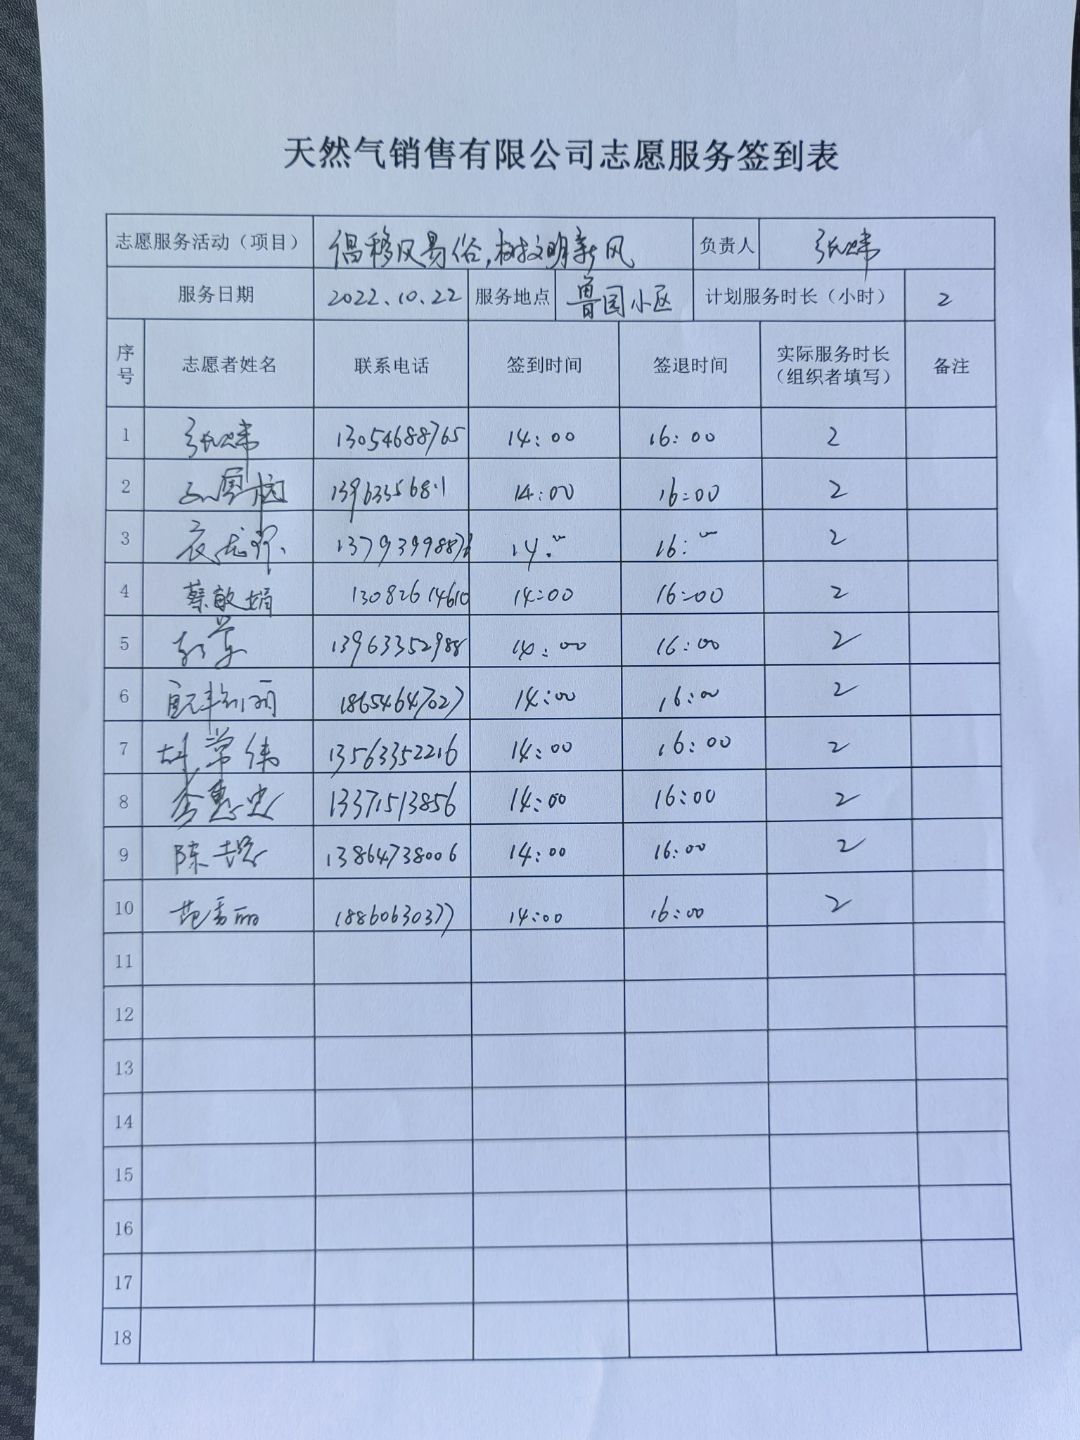 天然气销售有限公司志愿服务签到表
志愿服务活动（项目） 倡移风易俗,树文明新风 负责人 张炜
服务日期 2022.10.22 服务地点 鲁园小区 计划服务时长（小时） 2
序号 志愿者姓名 联系电话 签到时间 签退时间 实际服务时长（组织者填写） 备注
1 张炜 13054688765 14:00 16:00 2
2 14:00 16:00 2
3 14:00 16:00 2
4 蔡敏娟 13082614610 14:00 16:00 2
5 13963352988 14:00 16:00 2
6 18654647027 14:00 16:00 2
7 胡常伟 13563352216 14:00 16:00 2
8 李惠忠 13371513856 14:00 16:00 2
9 陈 13864738006 14:00 16:00 2
10 范秀丽 18860630377 14:00 16:00 2
11
12
13
14
15
16
17
18